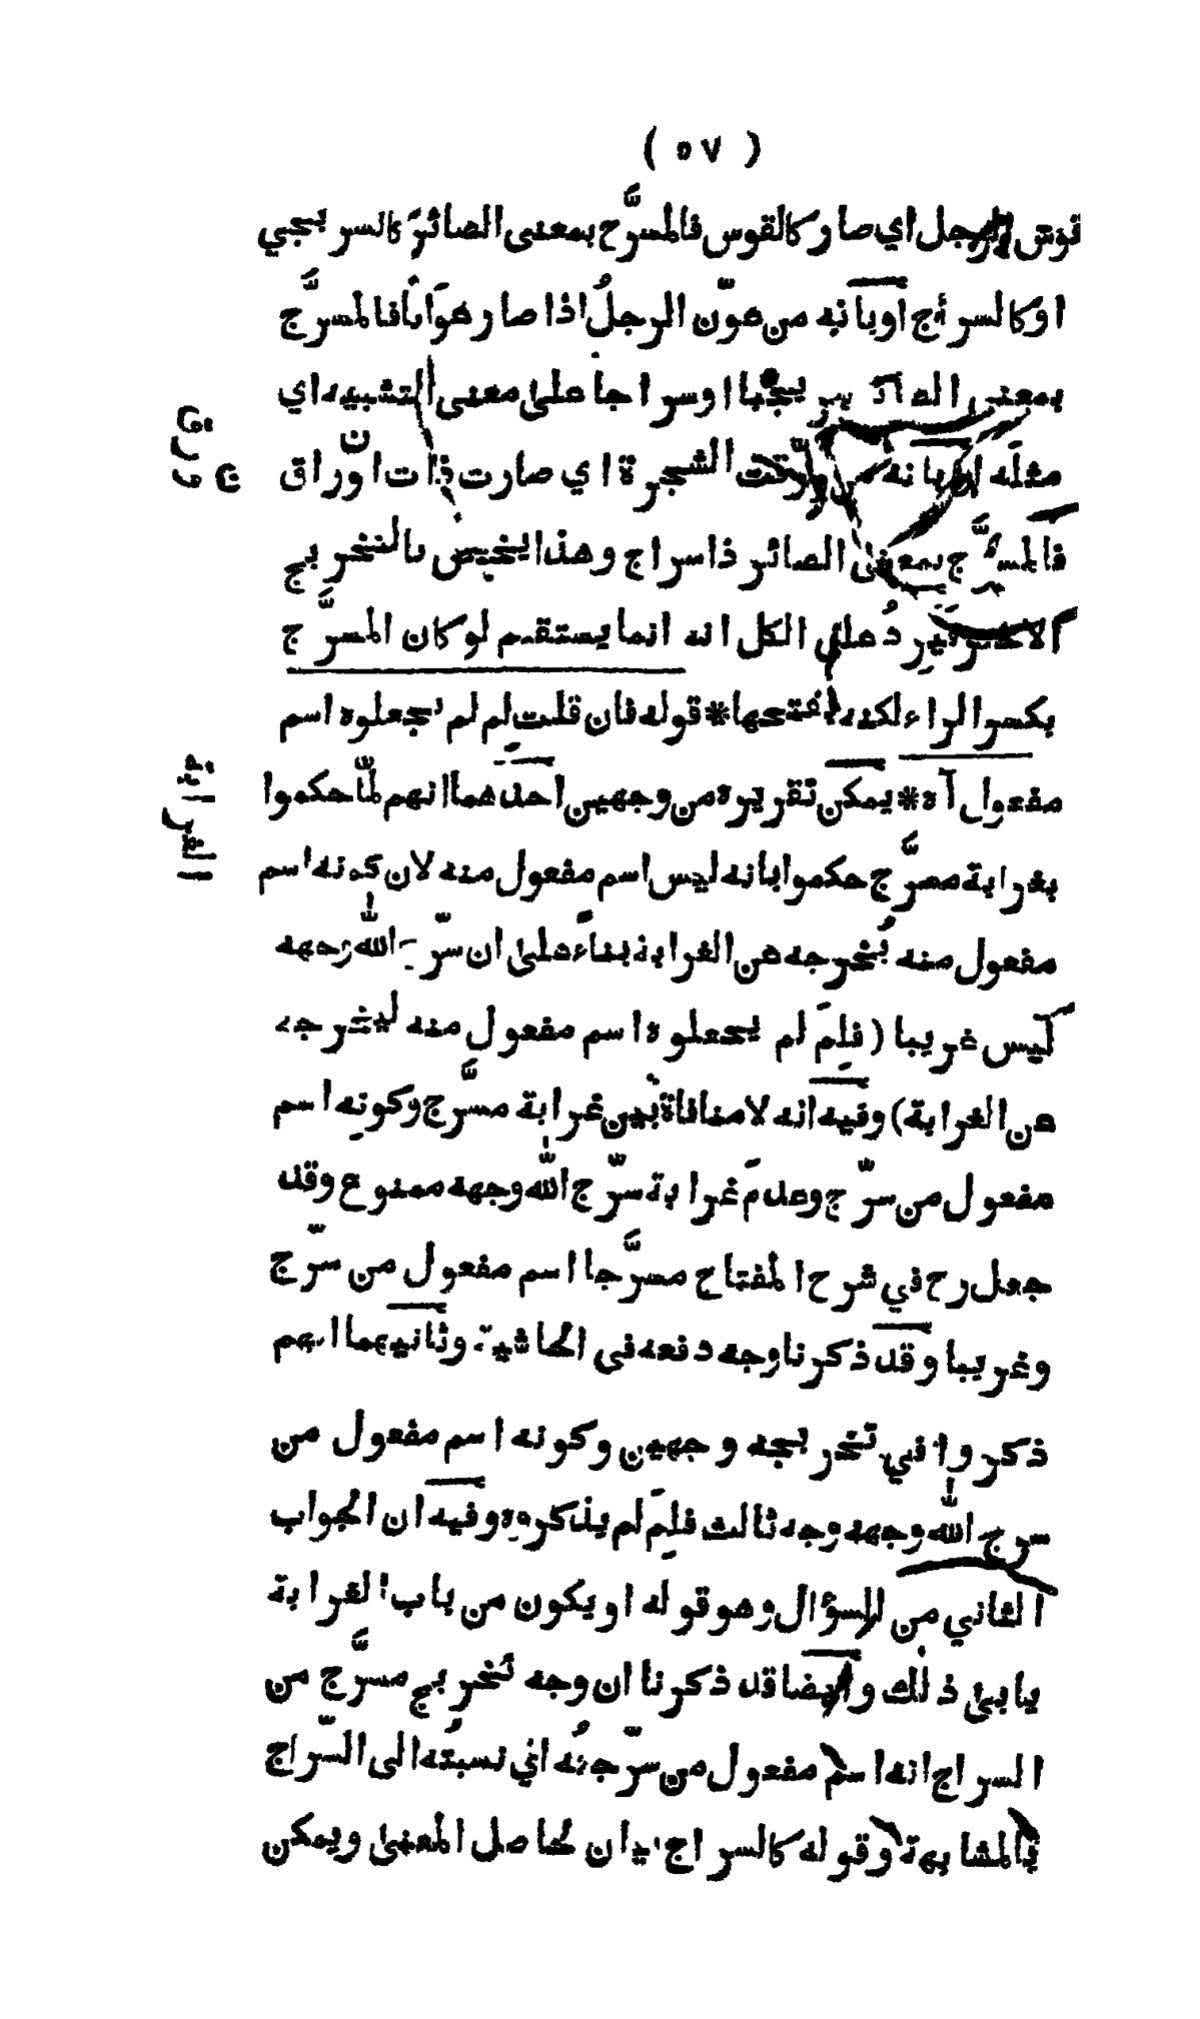 ( ٥٧ )
قوّس الرجل اي صار كالقوس فالمسرَّج بمعنى الصائر كالسريجي
او كالسراج او بانه من هوّن الرجلُ اذا صار هوانا فالمسرَّج
بمعنى سريجيا او سراجا على معنى التشبيه اي
مثله او بانه من ورّقت الشجرة اي صارت ذات اوراق
فالمسرَّج بمعنى الصائر ذا سراج وهذا يختص بالتخريج
الاخير يرِدُ على الكل انه انما يستقيم لو كان المسرَّج
بكسر الراء لكنه بفتحها * قوله فان قلت لم لم يجعلوه اسم
مفعول آه * يمكن تقريره من وجهين احدهما انهم لمّا حكموا
بغرابة مسرَّج حكموا بانه ليس اسم مفعول منه لان كونه اسم
مفعول منه يُخرجه عن الغرابة بناءً على ان سرّج اللّٰه وجهه
ليس غريبا ( فلِمَ لم يجعلوه اسم مفعول منه ليخرجه
عن الغرابة ) وفيه انه لا منافاة بين غرابة مسرَّج وكونه اسم
مفعول من سرّج وعدمَ غرابة سرّج اللّٰه وجهه ممنوع وقد
جعل رح في شرح المفتاح مسرَّجا اسم مفعول من سرّج
وغريبا وقد ذكرنا وجه دفعه في الحاشية وثانيهما انهم
ذكروا في تخريجه وجهين وكونه اسم مفعول من
سرج اللّٰه وجهه وجه ثالث فلِمَ لم يذكروه وفيه ان الجواب
الثاني من السؤال وهو قوله او يكون من باب الغرابة
يابى ذلك وايضا قد ذكرنا ان وجه تخريج مسرَّج من
السراج انه اسم مفعول من سرّجتُه اي نسبتُه الى السّراج
بالمشابهة وقوله كالسراج بيان لحاصل المعنى ويمكن
الغرابة